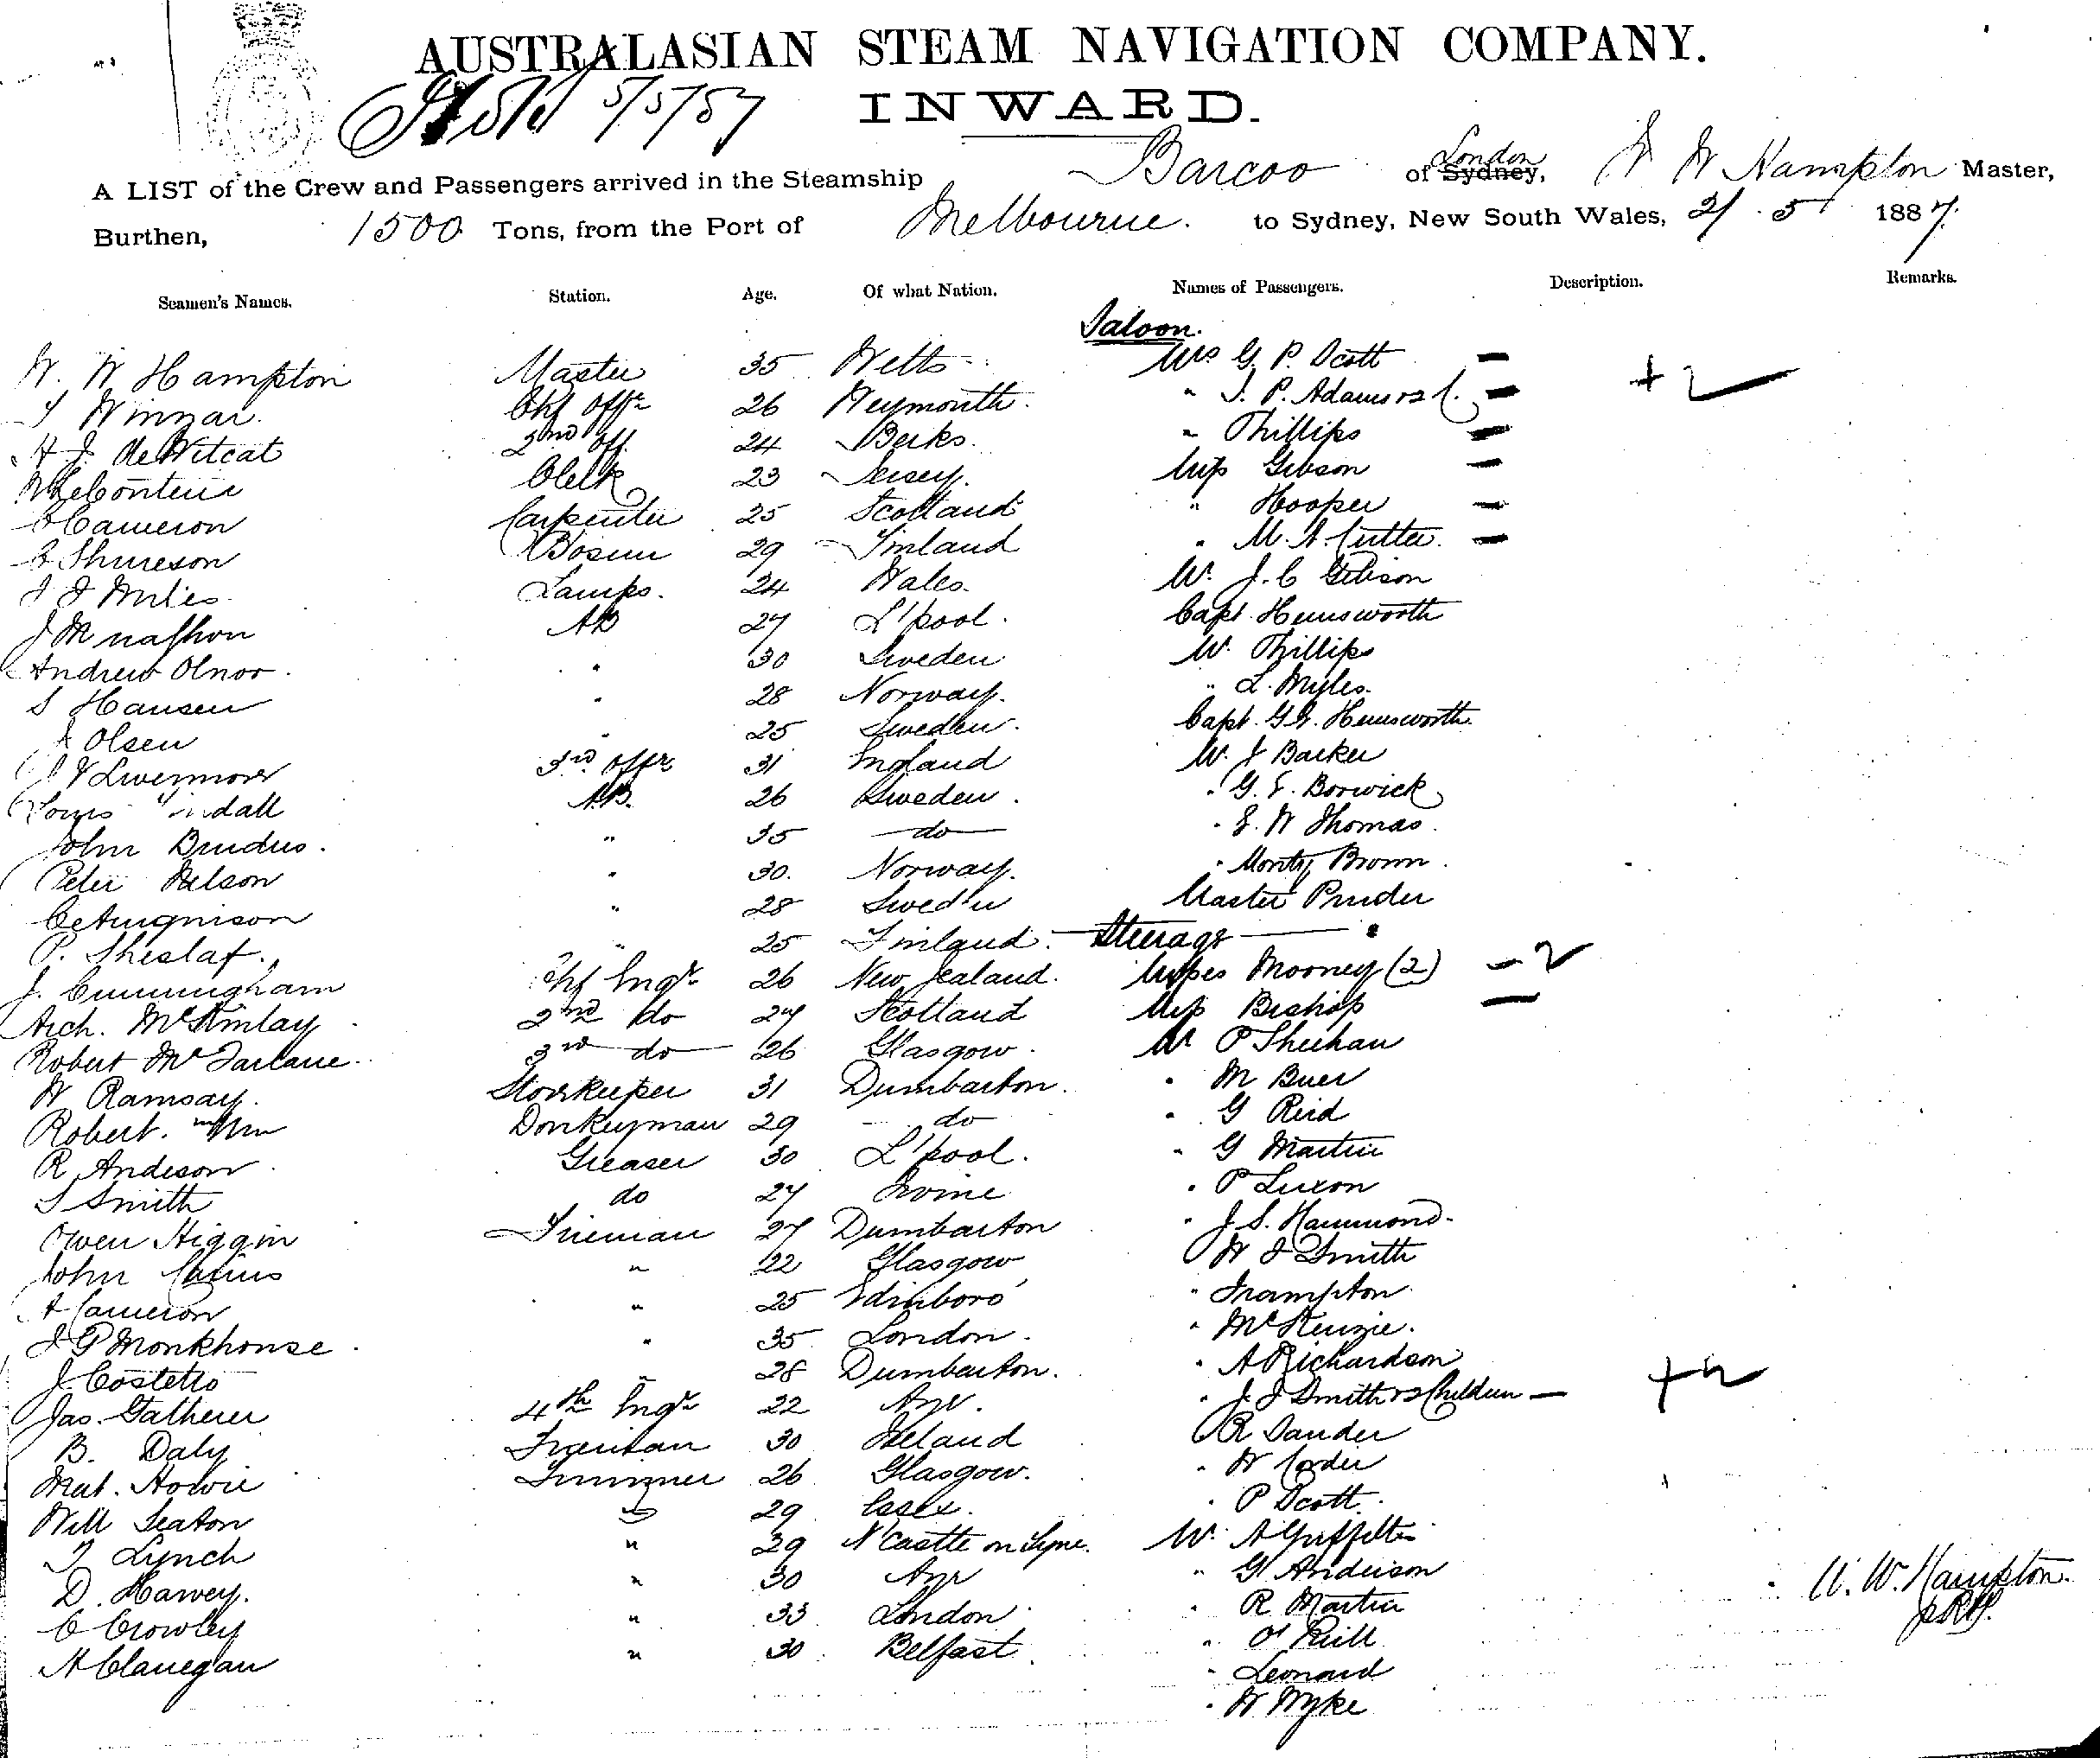 AUSTRALASIAN STEAM NAVIGATION COMPANY.
5/5/87
INWARD.
A LIST of the Crew and Passengers arrived in the Steamship Barcoo of Sydney, London W W Hampton Master,
Burthen, 1500 Tons, from the Port of Melbourne. to Sydney, New South Wales, 2/ 5 1887.
Seamen's Names. Station. Age. Of what Nation. Names of Passengers. Description. Remarks.
Saloon.
W. W Hampton Master 35 Wells Mrs G. P. Scott —
Winnar. Chf Offr 26 Weymouth. " J. P. Adams —
+ 2
2nd Off. 24 Berks. " Phillips —
Clerk 23 Jersey. Miss Gibson —
Cameron Carpenter 25 Scotland " Hooper —
Bosun 29 Finland " M. —
J J Miles Lamps. 24 Wales. Mr. J. C Gibson
AB 27 L'pool. Capt. Hemsworth
Andrew Olnor. " 30 Sweden Mr. Phillips
S Hansen " 28 Norway. " L. Myles.
Olsen " 25 Sweden. Capt. Hemsworth.
Livermore 3rd Offr 31 England Mr. J Barker
AB. 26 Sweden. " G. F. Borwick
John " 35 do " W Thomas.
Peter Nelson " 30. Norway. " Monty Brown.
" 28 Swed'n Master
P. " 25 Finland. Steerage
J. Cunningham Chf Engr 26 New Zealand. Misses Mooney (2) — 2
Arch. McKinlay 2nd do 27 Scotland Miss Bishop —
Robert McFarlane. 3rd do 26 Glasgow. Mr P Sheehan
W Ramsay. Storekeeper 31 Dumbarton. " M
Robert. Donkeyman 29 do " G Reid
R Anderson. Greaser 30 L'pool. " G Martin
S Smith do 27 Irvine " P Luxon
Owen Higgin Fireman 27 Dumbarton " J. S. Hammond.
John " 22 Glasgow " W J Smith
A Cameron " 25 Edinboro' " Frampton
J G Monkhouse. " 35 London. " McKenzie.
J. Costello " 28 Dumbarton. " A Richardson
Jas. Gatherer 4th Engr 22 Ayr. " J J Smith & 2 Children —
+ 2
B. Daly Fireman 30 Ireland R
Mat. Howie Trimmer 26 Glasgow. " W
Will Seaton " 29 Essex. " P Scott.
T Lynch " 29 N'Castle on Tyne. Mr. A
D. Harvey. " 30 Ayr " G Anderson
C Crowley " 33 London " R Martin
A Clanegan " 30 Belfast " O'Neill
" Leonard
" W Wyke
W. W. Hampton.